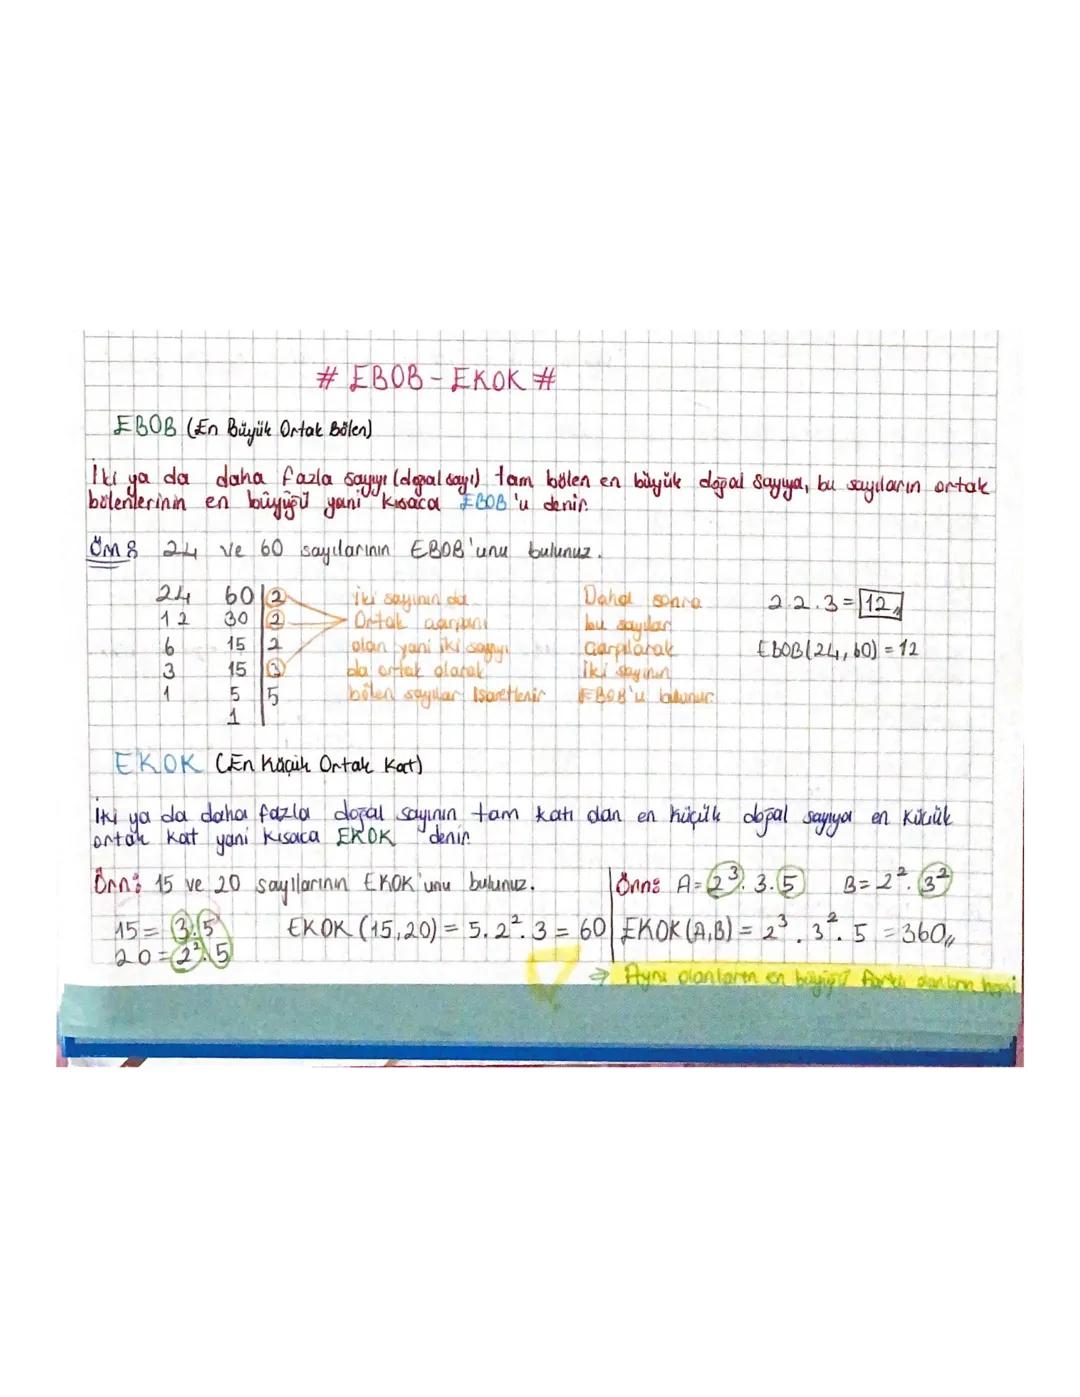 # EBOB - EKOK #
EBOB (En Büyük Ortak Bölen)
İki ya da daha fazla sayıyı (doğal sayı) tam bölen en büyük doğal sayıya, bu sayıların ortak
bölenlerinin en büyüğü yani kısaca EBOB'u denir.
Örn: 24 ve 60 sayılarının EBOB'unu bulunuz.
24 60 | 2
12 30 | 2
6 15 | 2
3 15 | 3
1 5 | 5
1
İki sayının da
Ortak çarpanı
olan yani iki sayıyı
da ortak olarak
bölen sayılar İşaretlenir
Daha sonra
bu sayılar
çarpılarak
İki sayının
EBOB'u bulunur.
2.2.3 = 12
EBOB(24,60) = 12
EKOK (En Küçük Ortak Kat)
İki ya da daha fazla doğal sayının tam katı olan en küçük doğal sayıya en küçük
ortak kat yani kısaca EKOK denir.
Örn: 15 ve 20 sayılarının EKOK'unu bulunuz.
15 = 3.5
20 = 2².5
EKOK (15,20) = 5.2².3 = 60
Örn: A = 2³.3.5 B = 2².3²
EKOK (A,B) = 2³.3².5 = 360
→ Aynı olanların en büyüğü farklı olanların hepsi